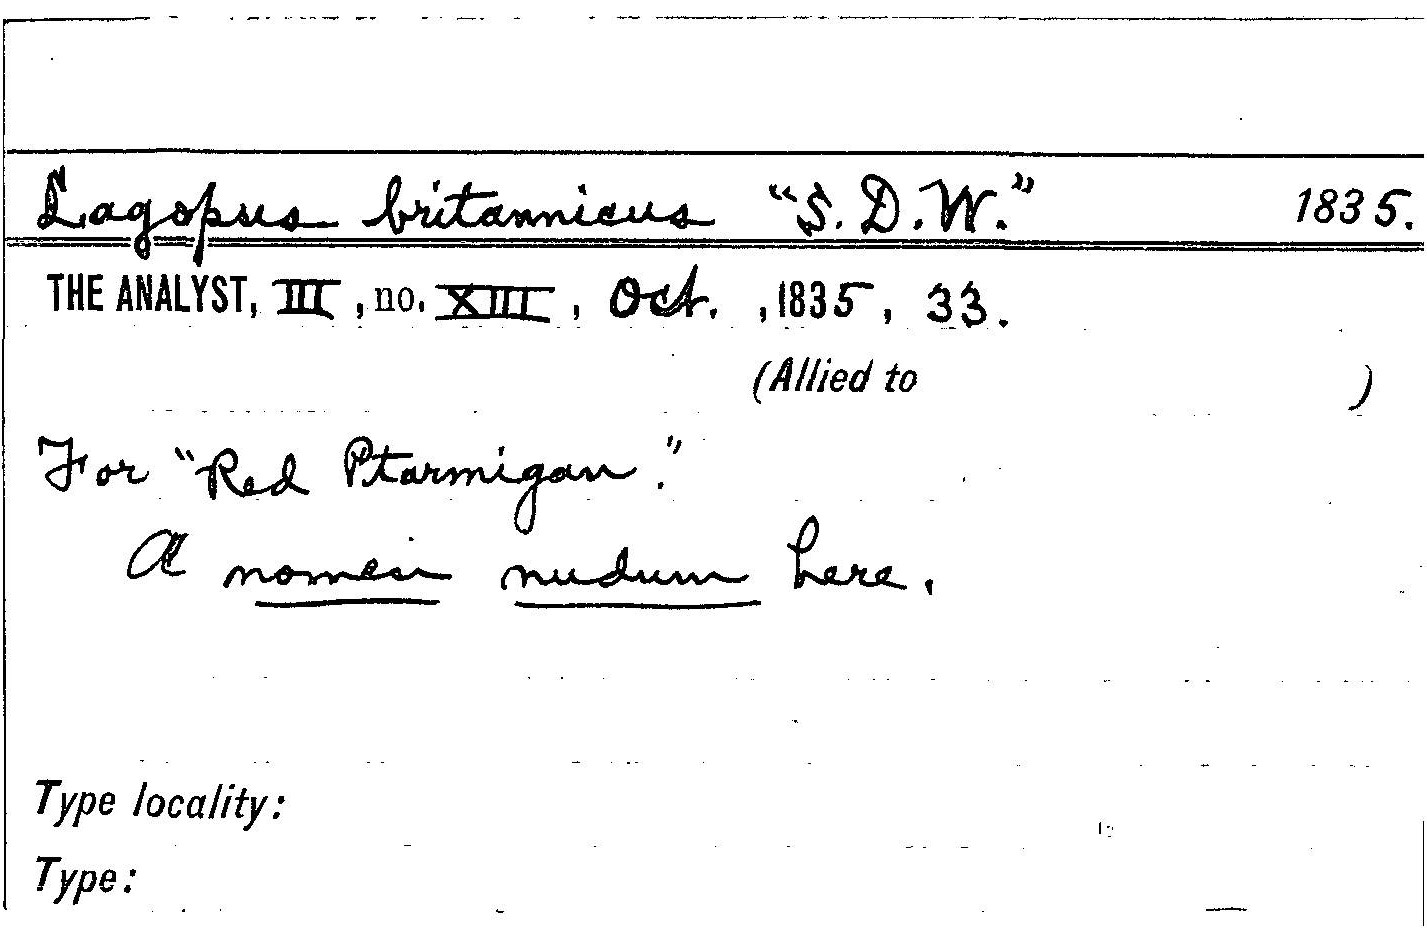 Lagopus britannicus "S. D. W." 1835.
THE ANALYST, III, no. XIII, Oct., 1835, 33.
(Allied to )
For "Red Ptarmigan."
A nomen nudum here.
Type locality:
Type: